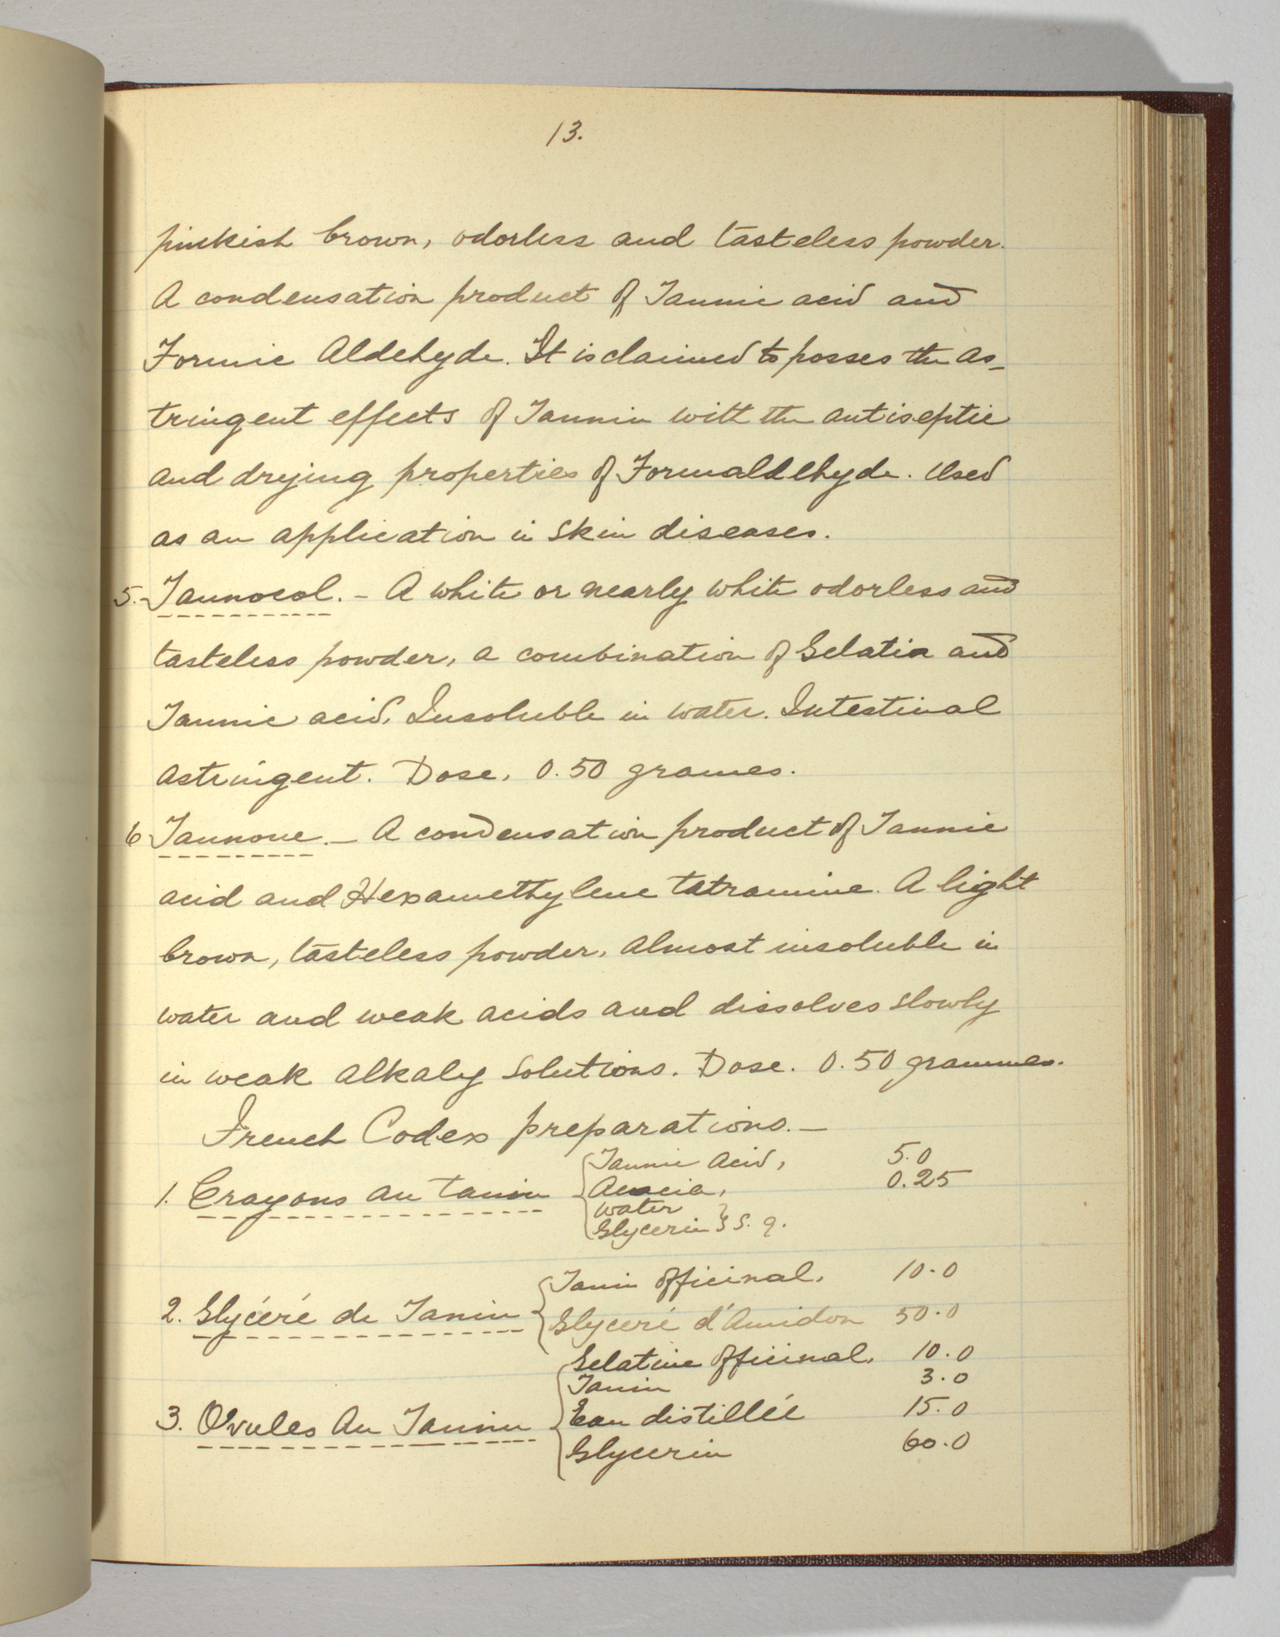 13.
pinkish brown, odorless and tasteless powder.
A condensation product of Tannic acid and
Formic Aldehyde. It is claimed to posses the as-
tringent effects of Tannin with the antiseptic
and drying properties of Formaldehyde. Used
as an application in skin diseases.
5.- Tannocol. - A white or nearly white odorless and
tasteless powder, a combination of Gelatin and
Tannic acid. Insoluble in water. Intestinal
astringent. Dose, 0.50 grames.
6 Tannone. - A condensation product of Tannic
acid and Hexamethylene tatramine. A light
brown, tasteless powder, almost insoluble in
water and weak acids and dissolves slowly
in weak alkaly solutions. Dose. 0.50 grammes.
French Codex preparations. -
Tannic Acid, 5.0
1. Crayons au tanin { Acacia, 0.25
water
Glycerin } S. q.
Tanin officinal, 10.0
2. Glycéré de Tanin {
Glyceré d'Amidon 50.0
Gelatine officinal, 10.0
Tanin 3.0
3. Ovules Au Tannin { Eau distillée 15.0
Glycerin 60.0